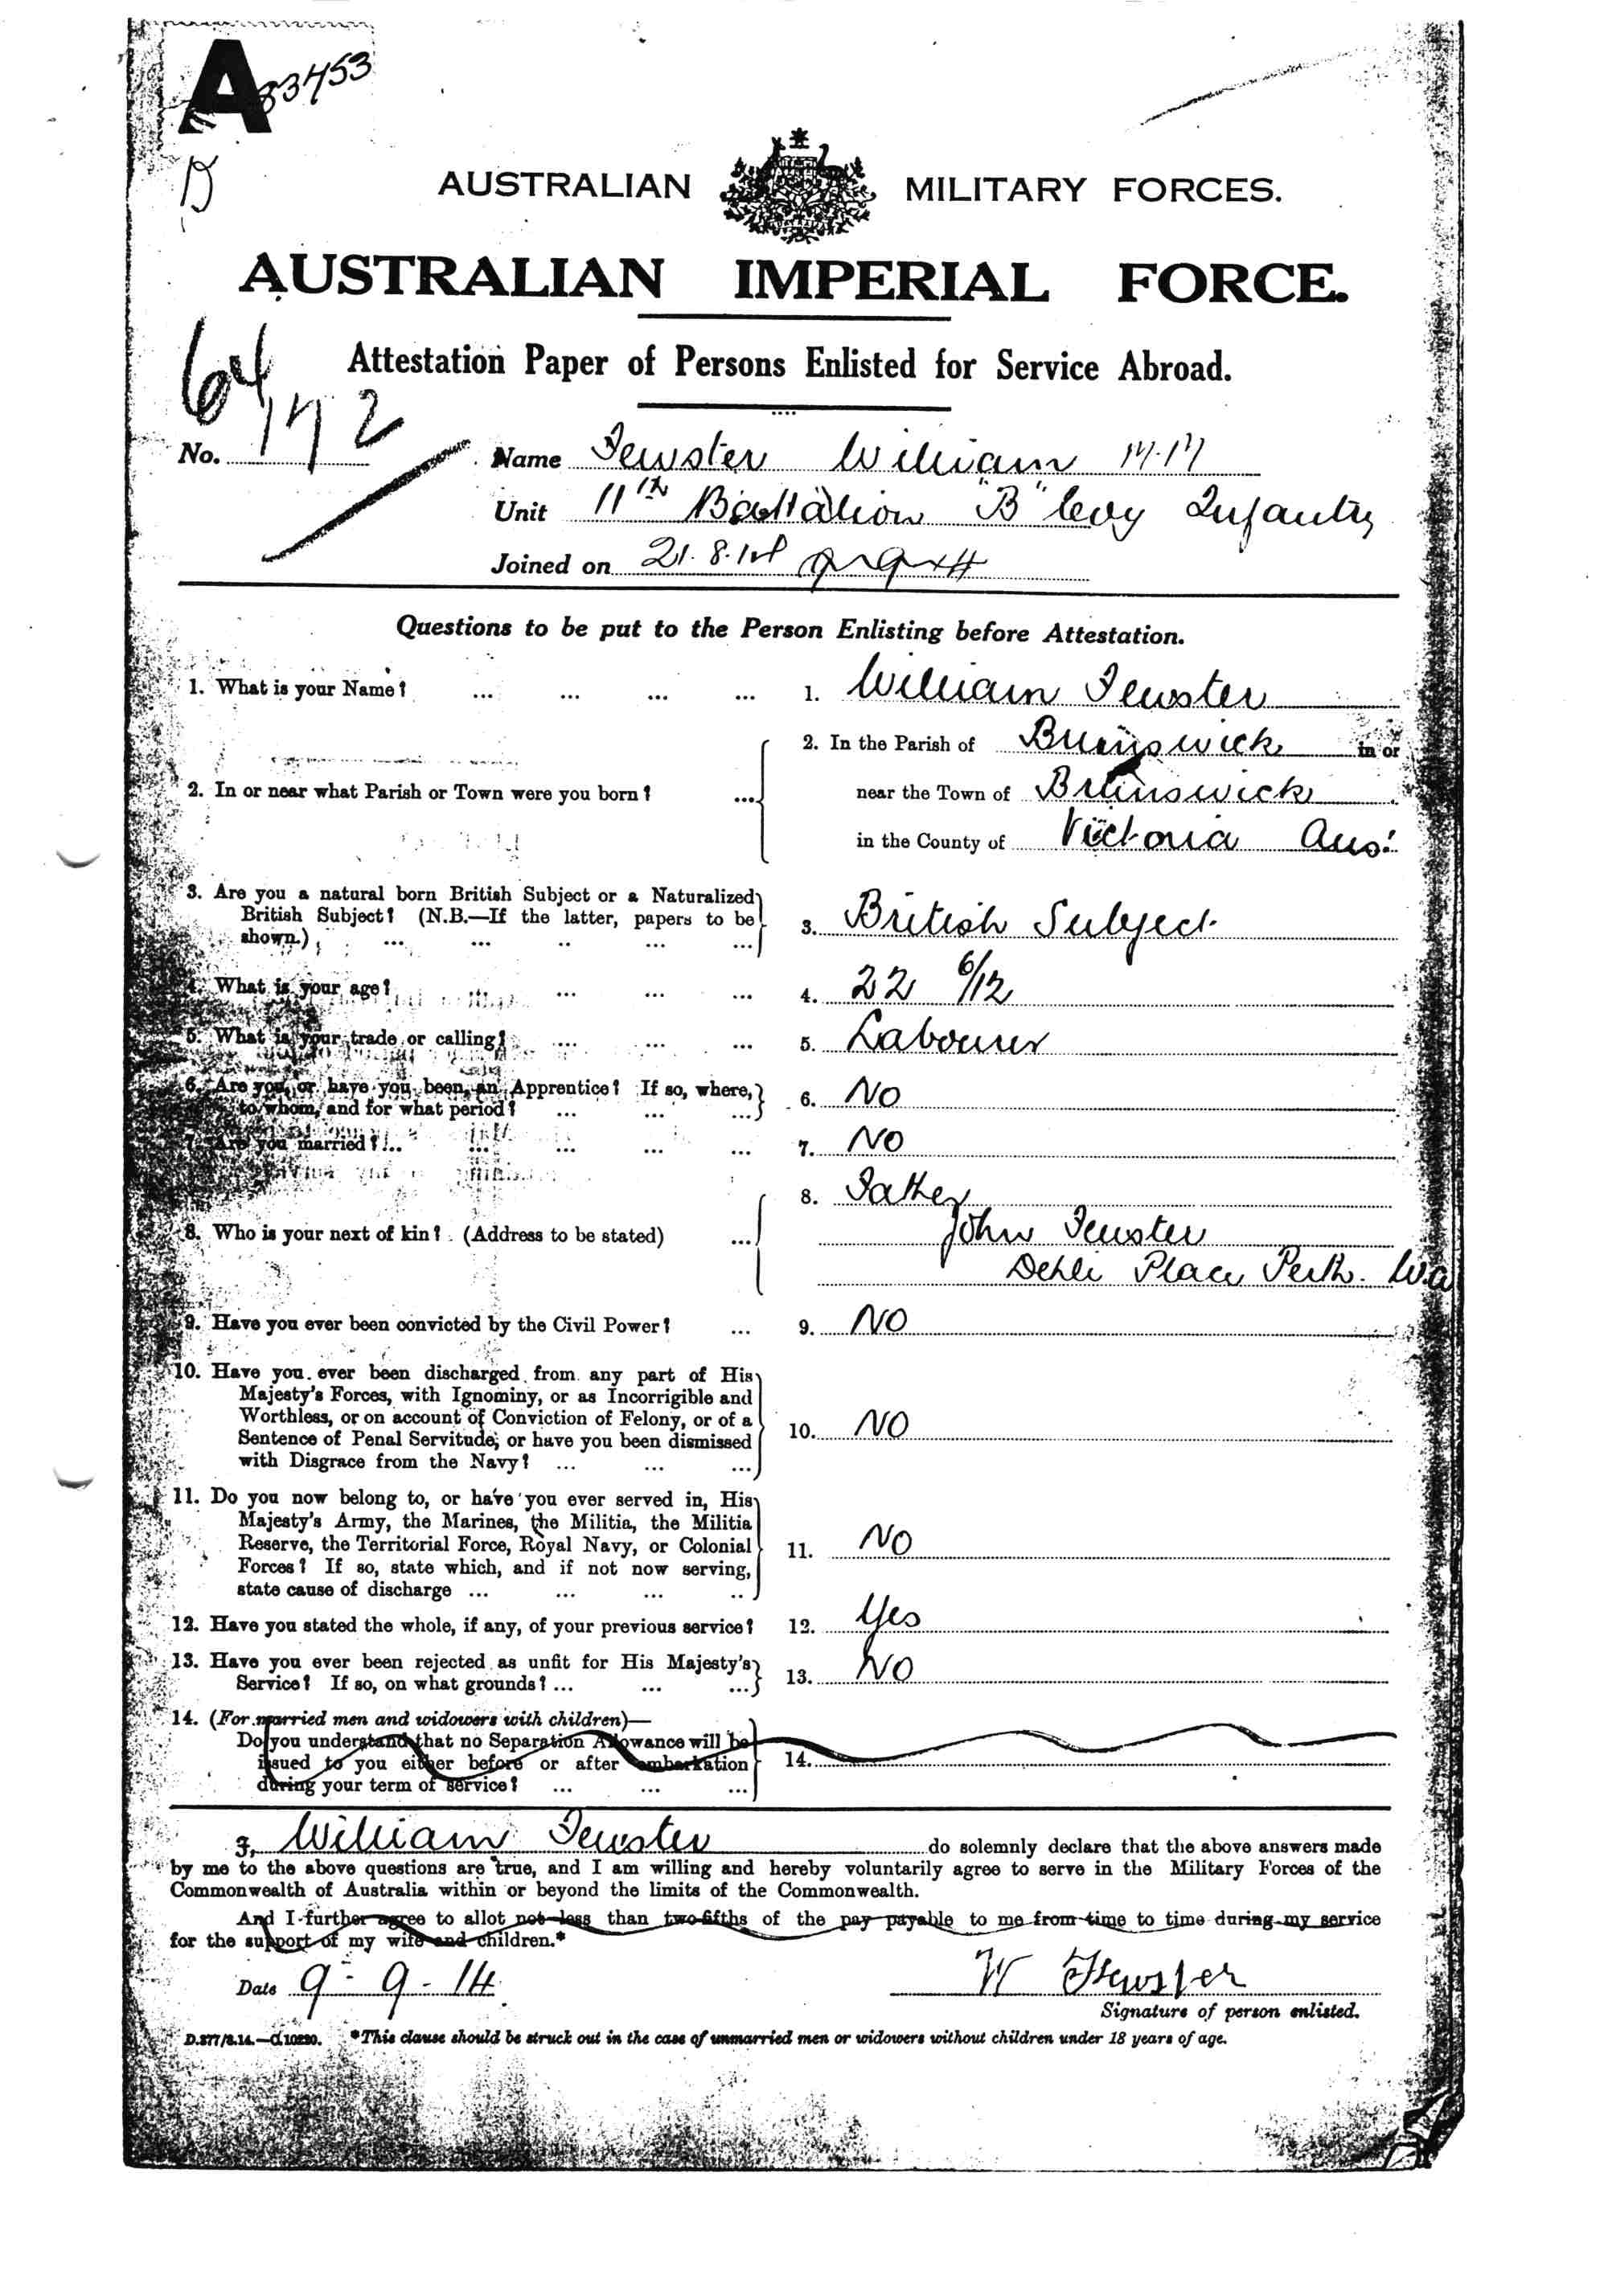 A 83453
AUSTRALIAN MILITARY FORCES.
AUSTRALIAN IMPERIAL FORCE.
Attestation Paper of Persons Enlisted for Service Abroad.
64
No. 172 Name Fewster William M.M
Unit 11th Battalion "B" Coy Infantry
Joined on 21.8.14
Questions to be put to the Person Enlisting before Attestation.
1. What is your Name? ... ... ... ... 1. William Fewster
2. In the Parish of Brunswick in or
2. In or near what Parish or Town were you born? ... near the Town of Brunswick
in the County of Victoria Aus:
3. Are you a natural born British Subject or a Naturalized
British Subject? (N.B.—If the latter, papers to be 3. British Subject
shown.) ... ... .. ... ...
4. What is your age? ... ... ... ... 4. 22 6/12
5. What is your trade or calling? ... ... ... 5. Labourer
6. Are you, or have you been, an Apprentice? If so, where, 6. No
to whom, and for what period? ... ... ...
7. Are you married? ... ... ... ... ... 7. No
8. Father
8. Who is your next of kin? (Address to be stated) ... John Fewster
Dehli Place Perth. W.a
9. Have you ever been convicted by the Civil Power? ... 9. No
10. Have you ever been discharged from any part of His
Majesty's Forces, with Ignominy, or as Incorrigible and
Worthless, or on account of Conviction of Felony, or of a 10. No
Sentence of Penal Servitude, or have you been dismissed
with Disgrace from the Navy? ... ... ...
11. Do you now belong to, or have you ever served in, His
Majesty's Army, the Marines, the Militia, the Militia
Reserve, the Territorial Force, Royal Navy, or Colonial 11. No
Forces? If so, state which, and if not now serving,
state cause of discharge ... ... ... ..
12. Have you stated the whole, if any, of your previous service? 12. Yes
13. Have you ever been rejected as unfit for His Majesty's 13. No
Service? If so, on what grounds? ... ... ...
14. (For married men and widowers with children)—
Do you understand that no Separation Allowance will be
issued to you either before or after embarkation 14.
during your term of service? ... ... ...
I, William Fewster do solemnly declare that the above answers made
by me to the above questions are true, and I am willing and hereby voluntarily agree to serve in the Military Forces of the
Commonwealth of Australia within or beyond the limits of the Commonwealth.
And I further agree to allot not less than two-fifths of the pay payable to me from time to time during my service
for the support of my wife and children.*
Date 9-9-14 W Fewster
Signature of person enlisted.
D.377/8.14.—C.10280. *This clause should be struck out in the case of unmarried men or widowers without children under 18 years of age.